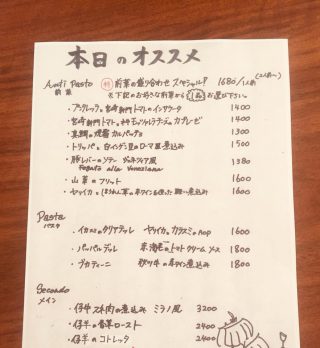 本日のオススメ
Anti Pasto 特 前菜の盛り合わせ スペシャル!! 1680/1人前 (2人前〜)
前菜 ※下記のお好きな前菜から 1品 お選び下さい。
トマトのインサラータ 1400
トマト モッツァレラチーズの カプレーゼ 1400
・真鯛の カルパッチョ 1300
・トリッパと 白インゲン豆の ローマ風 煮込み 1500
・豚レバーのソテー ヴェネツィア風 1380
Fegato alla veneziana
・山菜のフリット 1600
・ヤリイカと ほうれん草の 煮込み 1600
Pasta
パスタ
・イカスミのタリアテッレ ヤリイカとカラスミの 1600
・パッパルデッレ トマトクリームソース 1800
・ブカティーニ 赤ワイン煮込み 1800
Secondo
メイン
・仔牛スネ肉の煮込み ミラノ風 3200
・仔羊の香草ロースト 2400
・仔牛のコトレッタ 2400